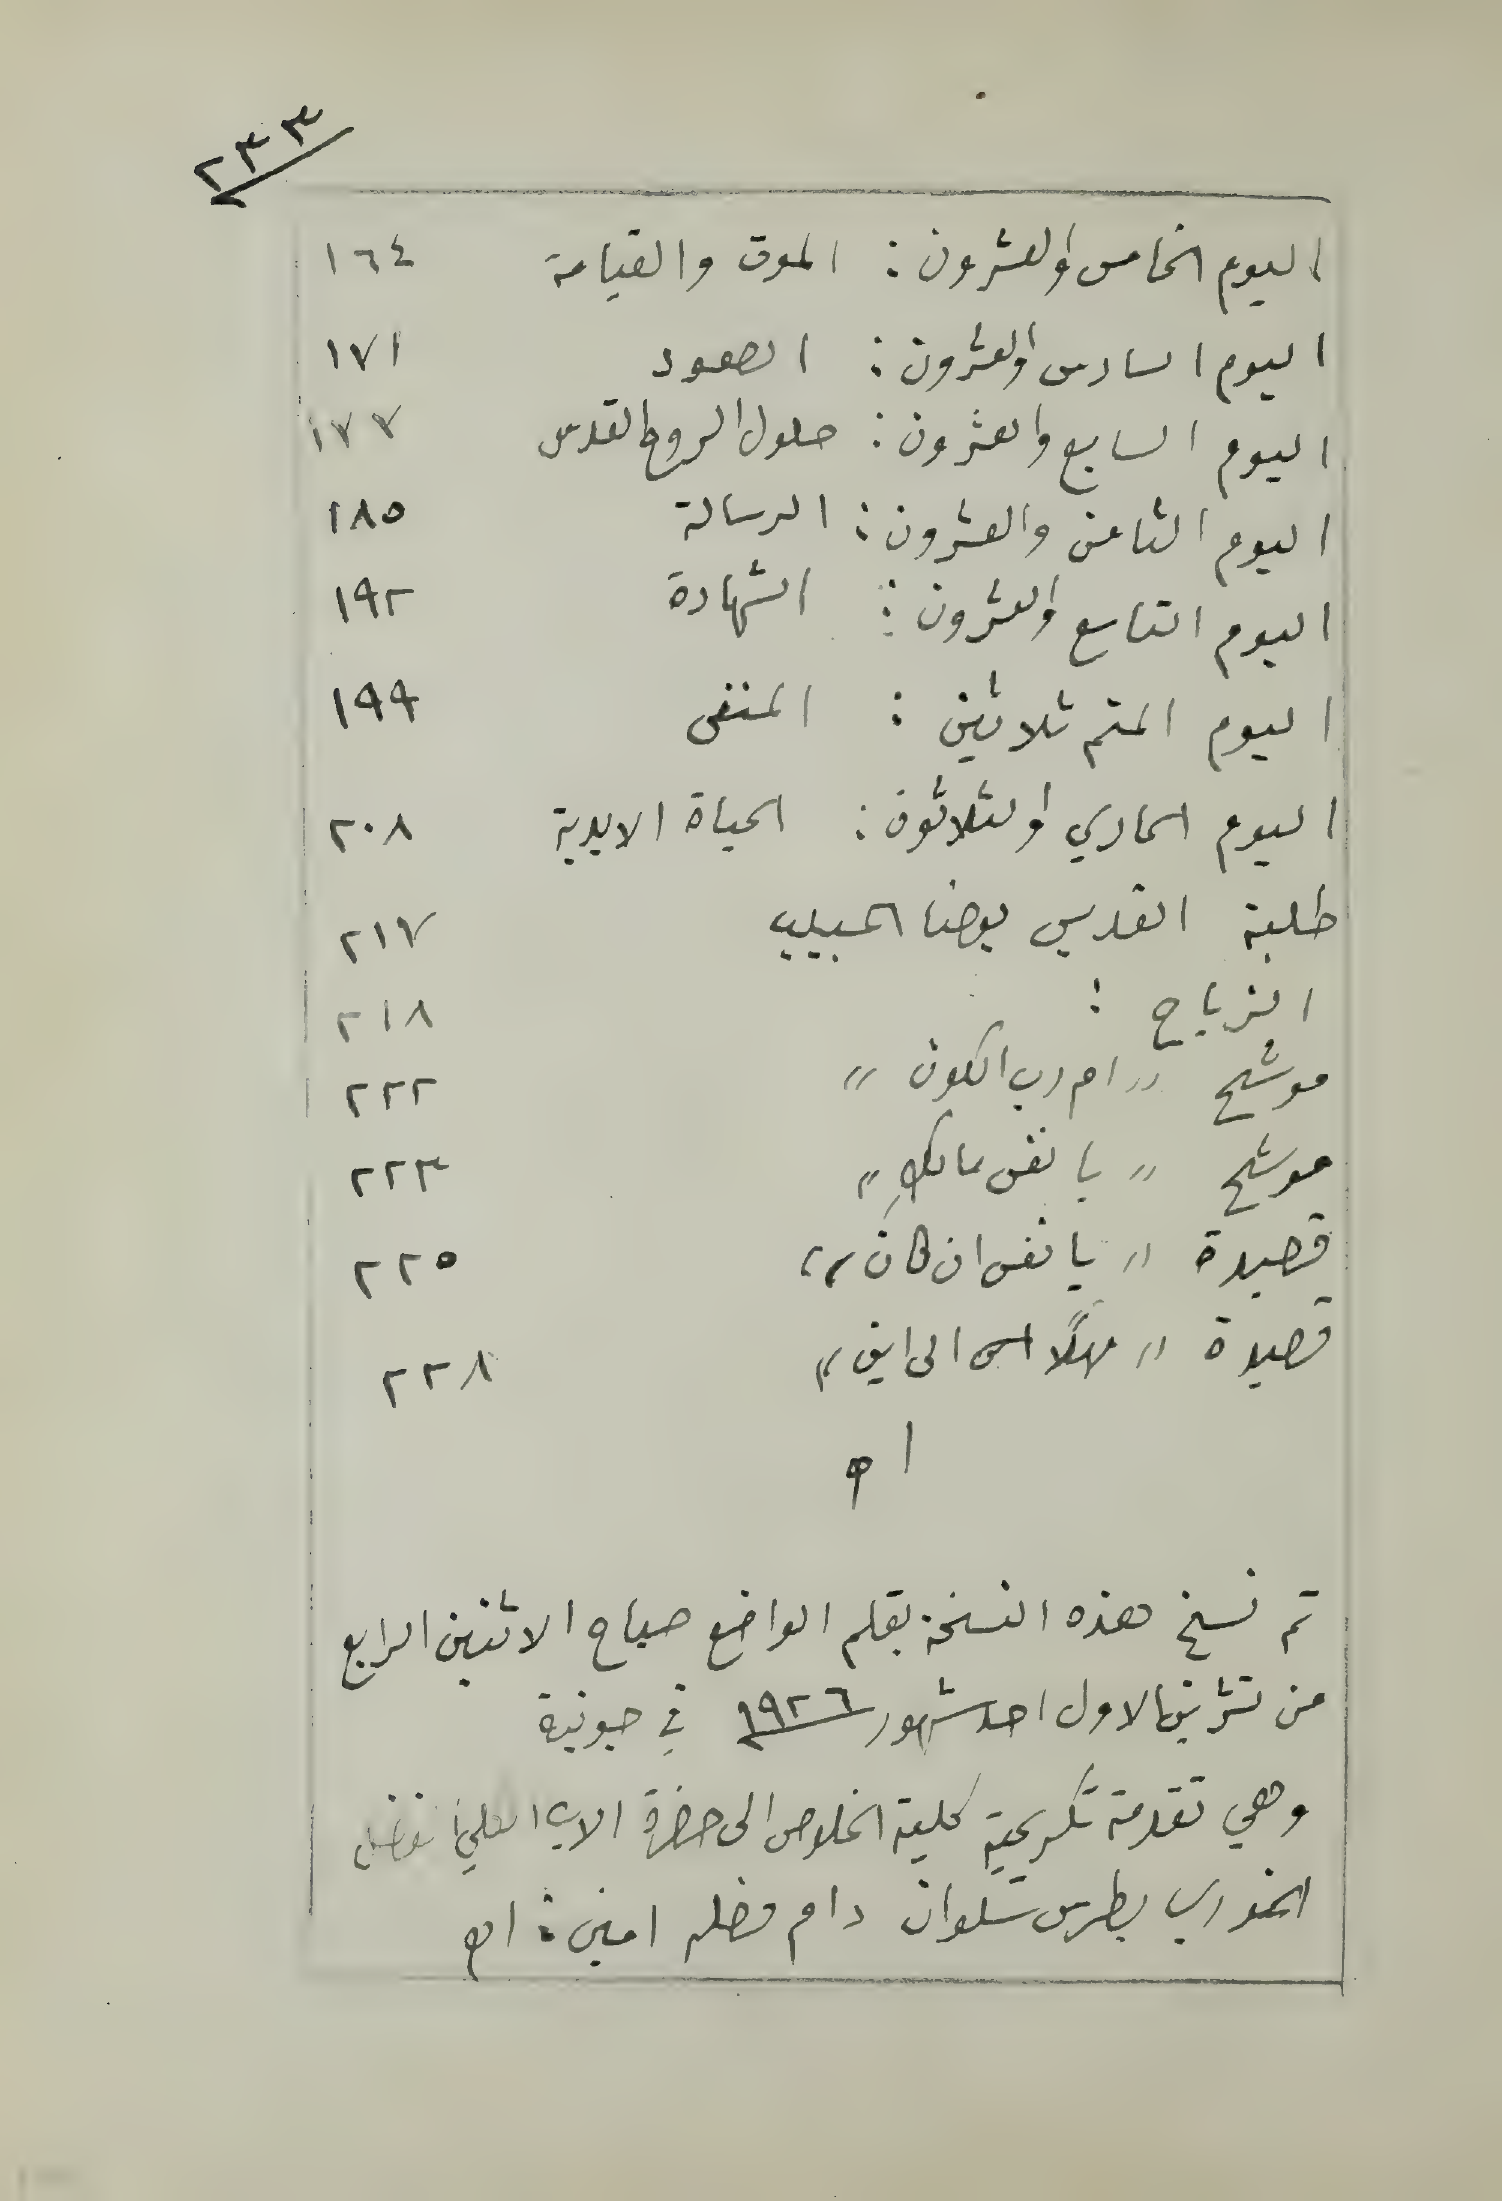 ٢٣٣
اليوم الخامس والعشرون : الموت والقيامة ١٦٤
اليوم السادس والعشرون : الصعود ١٧١
اليوم السابع والعشرون : حلول الروح القدس ١٧٧
اليوم الثامن والعشرون : الرسالة ١٨٥
اليوم التاسع والعشرون : الشهادة ١٩٢
اليوم المتم ثلاثين : المنفى ١٩٩
اليوم الحادي والثلاثون : الحياة الابدية ٢٠٨
طلبة القديس يوحنا الحبيب ٢١٧
الزياح : ٢١٨
موشح " ام رب الكون " ٢٢٢
موشح " يا نفس مالكِ " ٢٢٣
قصيدة " يا نفس ان كان " ٢٢٥
قصيدة " مهلًا الى اين " ٢٢٨
اه
تم نسخ هذه النسخة بقلم الواضع صباح الاثنين الرابع
من تشرين الاول احد شهور ١٩٢٦ في جونية
وهي تقدمة تكريمية لحضرة الاب
الخوري بطرس دام فضله امين : اه